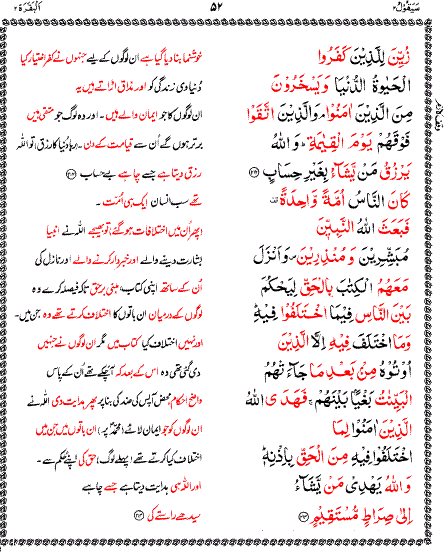 سَيَقُوْلُ ۲
۵۲
اَلْبَقَرَة ۲
زُيِّنَ لِلَّذِيْنَ كَفَرُوا
الْحَيٰوةُ الدُّنْيَا وَيَسْخَرُوْنَ
مِنَ الَّذِيْنَ اٰمَنُوْا ۘ وَالَّذِيْنَ اتَّقَوْا
فَوْقَهُمْ يَوْمَ الْقِيٰمَةِ ؕ وَاللّٰهُ
يَرْزُقُ مَنْ يَّشَآءُ بِغَيْرِ حِسَابٍ
كَانَ النَّاسُ اُمَّةً وَّاحِدَةً
فَبَعَثَ اللّٰهُ النَّبِيّٖنَ
مُبَشِّرِيْنَ وَمُنْذِرِيْنَ ۪ وَاَنْزَلَ
مَعَهُمُ الْكِتٰبَ بِالْحَقِّ لِيَحْكُمَ
بَيْنَ النَّاسِ فِيْمَا اخْتَلَفُوْا فِيْهِ ؕ
وَمَا اخْتَلَفَ فِيْهِ اِلَّا الَّذِيْنَ
اُوْتُوْهُ مِنْۢ بَعْدِ مَا جَآءَتْهُمُ
الْبَيِّنٰتُ بَغْيًۢا بَيْنَهُمْ ۚ فَهَدَى اللّٰهُ
الَّذِيْنَ اٰمَنُوْا لِمَا
اخْتَلَفُوْا فِيْهِ مِنَ الْحَقِّ بِاِذْنِهٖ ؕ
وَاللّٰهُ يَهْدِيْ مَنْ يَّشَآءُ
اِلٰى صِرَاطٍ مُّسْتَقِيْمٍ
خوشنما بنا دیا گیا ہے ان لوگوں کے لیے جنہوں نے کفر اختیار کیا
دنیاوی زندگی کو اور مذاق اڑاتے ہیں یہ
ان لوگوں کا جو ایمان والے ہیں۔ اور وہ لوگ جو متقی ہیں
برتر ہوں گے اُن سے قیامت کے دن۔ رہا دنیا کا رزق، تو اللہ
رزق دیتا ہے جسے چاہے بے حساب
تھے سب انسان ایک ہی اُمت۔
(پھر اُن میں اختلافات ہو گئے) تو بھیجے اللہ نے انبیا
بشارت دینے والے اور خبردار کرنے والے اور نازل کی
اُن کے ساتھ اپنی کتاب، مبنی برحق تاکہ فیصلہ کرے وہ
لوگوں کے درمیان ان باتوں کا اختلاف کرتے تھے وہ جن میں۔
اور نہیں اختلاف کیا کتاب میں مگر ان لوگوں نے جنہیں
دی گئی تھی وہ اس کے بعد کہ آچکے تھے اُن کے پاس
واضح احکام محض آپس کی ضد کی بنا پر پھر ہدایت دی اللہ نے
ان لوگوں کو جو ایمان لائے (محمدؐ پر) ان باتوں میں جن میں
اختلاف کیا کرتے تھے (پہلے لوگ) حق کی اپنے حکم سے۔
اور اللہ ہی ہدایت دیتا ہے جسے چاہے
سیدھے راستے کی